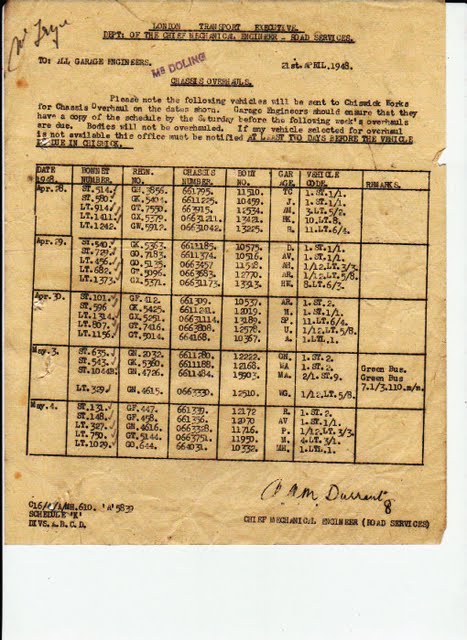 Mr Frye
LONDON TRANSPORT EXECUTIVE.
DEPT: OF THE CHIEF MECHANICAL ENGINEER - ROAD SERVICES.
TO: ALL GARAGE ENGINEERS. MR DOLING 21st. APRIL, 1948.
CHASSIS OVERHAULS.
Please note the following vehicles will be sent to Chiswick Works
for Chassis Overhaul on the dates shown. Garage Engineers should ensure that they
have a copy of the schedule by the Saturday before the following week's overhauls
are due. Bodies will not be overhauled. If any vehicle selected for overhaul
is not available this office must be notified AT LEAST TWO DAYS BEFORE THE VEHICLE
IS DUE IN CHISWICK.
DATE 1948. BONNET NUMBER. REGN. NO. CHASSIS NUMBER. BODY NO. GAR AGE. VEHICLE CODE. REMARKS.
Apr. 28. ST. 514. GH. 3856. 661795. 11510. TC 1. ST. 1/1.
ST. 580. GK. 5404. 6611225. 10459. J. 1. ST. 1/1.
LT. 914. GT. 7550. 663915. 11534. AM. 3. LT. 5/2.
LT. 1411. GX. 5379. 06631211. 13421. HK. 10. LT. 8.
LT. 1242. GW. 5912. 06631042. 13225. R. 11. LT. 6/4.
Apr. 29. ST. 540. GK. 5363. 6611185. 10575. D. 1. ST. 1/1.
ST. 729. GO. 7183. 6611374. 10516. AV. 1. ST. 1/1.
LT. 456. GO. 5135. 0663457 11548. AH. 1/12. LT. 3/3.
LT. 682. GT. 5096. 0663683. 12770. AR. 1/12. LT. 5/8.
LT. 1373. GX. 5371. 06631173. 13313. HK. 8. LT. 6/3.
Apr. 30. ST. 101. GF. 412. 661309. 10537. AR. 1. ST. 2.
ST. 596. GK. 5425. 6611241. 12019. N. 1. ST. 1/1.
LT. 1314. GX. 5251. 06631114. 13189. SP. 11. LT. 6/4.
LT. 807. GT. 7416. 0663808. 12578. U. 1/12. LT. 5/8.
LT. 1156. GT. 5014. 664168. 10367. A. 1. LTL. 1.
May. 3. ST. 635. GN. 2032. 6611280. 12222. GN. 1. ST. 2.
ST. 543. GK. 5360. 6611188. 12168. WA 1. ST. 2. Green Bus.
ST. 1044B. GN. 4726. 6611484. 15903. MA. 2/1. ST. 9. Green Bus
7.1/3.110.m/m.
LT. 329. GN. 4615. 0663330. 12510. WG. 1/12. LT. 5/8.
May. 4. ST. 131. GF. 447. 661339. 12172 R. 1. ST. 2.
ST. 148. GF. 458. 661356. 12070 AV 1. ST. 1/1.
LT. 327. GN. 4616. 0663328. 11716. P. 1/12. LT. 3/3.
LT. 750. GT. 5144. 0663751. 11950. M. 4. LT. 3/1.
LT. 1029. GO. 644. 664031. 10332. MH. 1. LTL. 1.
A.A.M. Durrant
8
SCHEDULE 'K' CHIEF MECHANICAL ENGINEER (ROAD SERVICES)
DIVS. A. B. C. D.